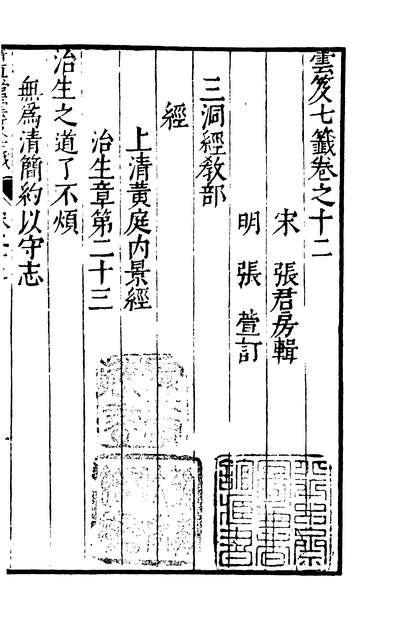 雲笈七籤卷之十二
宋 張君房輯
明 張萱訂
三洞經敎部
經
上清黄庭内景經
治生章第二十三
治生之道了不煩
無爲清簡約以守志